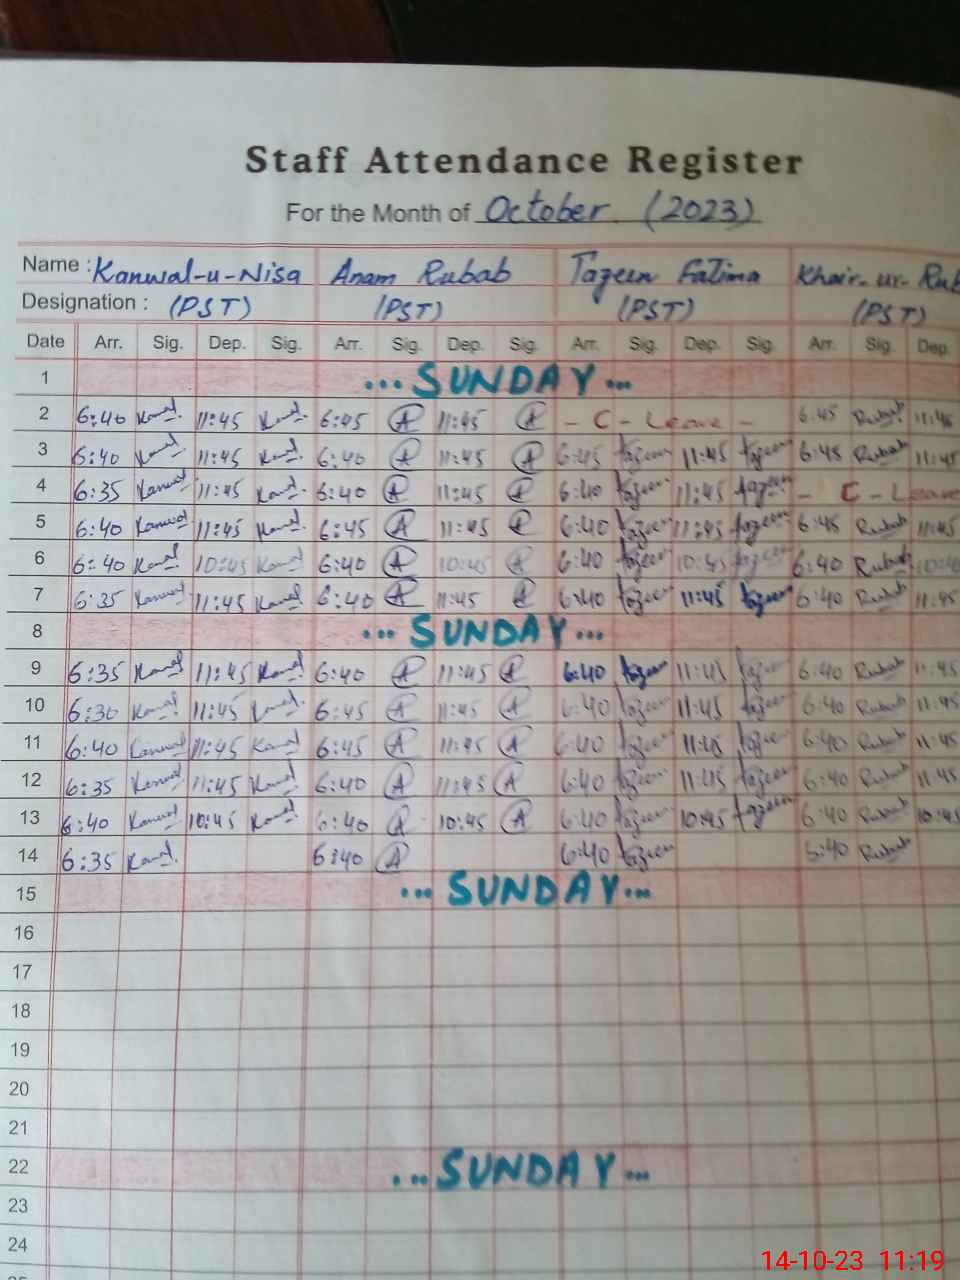 Staff Attendance Register
For the Month of October (2023)
Name : Kanwal-u-Nisa Anam Rubab Tazeen Fatima Khair-ur-Rub
Designation : (PST) (PST) (PST) (PST)
Date Arr. Sig. Dep. Sig. Arr. Sig. Dep. Sig. Arr. Sig. Dep. Sig. Arr. Sig. Dep.
1 ... SUNDAY ...
2 6:40 Kanwal 11:45 Kanwal 6:45 A 11:45 A - C - Leave - 6:45 Rubab 11:45
3 6:40 Kanwal 11:45 Kanwal 6:40 A 11:45 A 6:45 Tazeen 11:45 Tazeen 6:45 Rubab 11:45
4 6:35 Kanwal 11:45 Kanwal 6:40 A 11:45 A 6:40 Tazeen 11:45 Tazeen - C - Leave
5 6:40 Kanwal 11:45 Kanwal 6:45 A 11:45 A 6:40 Tazeen 11:45 Tazeen 6:45 Rubab 11:45
6 6:40 Kanwal 10:45 Kanwal 6:40 A 10:45 A 6:40 Tazeen 10:45 Tazeen 6:40 Rubab
7 6:35 Kanwal 11:45 Kanwal 6:40 A 11:45 A 6:40 Tazeen 11:45 Tazeen 6:40 Rubab 11:45
8 ... SUNDAY ...
9 6:35 Kanwal 11:45 Kanwal 6:40 A 11:45 A 6:40 Tazeen 11:45 Tazeen 6:40 Rubab 11:45
10 6:30 Kanwal 11:45 Kanwal 6:45 A 11:45 A 6:40 Tazeen 11:45 Tazeen 6:40 Rubab 11:45
11 6:40 Kanwal 11:45 Kanwal 6:45 A 11:45 A 6:40 Tazeen 11:45 Tazeen 6:40 Rubab 11:45
12 6:35 Kanwal 11:45 Kanwal 6:40 A 11:45 A 6:40 Tazeen 11:45 Tazeen 6:40 Rubab 11:45
13 6:40 Kanwal 10:45 Kanwal 6:40 A 10:45 A 6:40 Tazeen 10:45 Tazeen 6:40 Rubab 10:45
14 6:35 Kanwal 6:40 A 6:40 Tazeen 6:40 Rubab
15 ... SUNDAY ...
16
17
18
19
20
21
22 ... SUNDAY ...
23
24
14-10-23 11:19